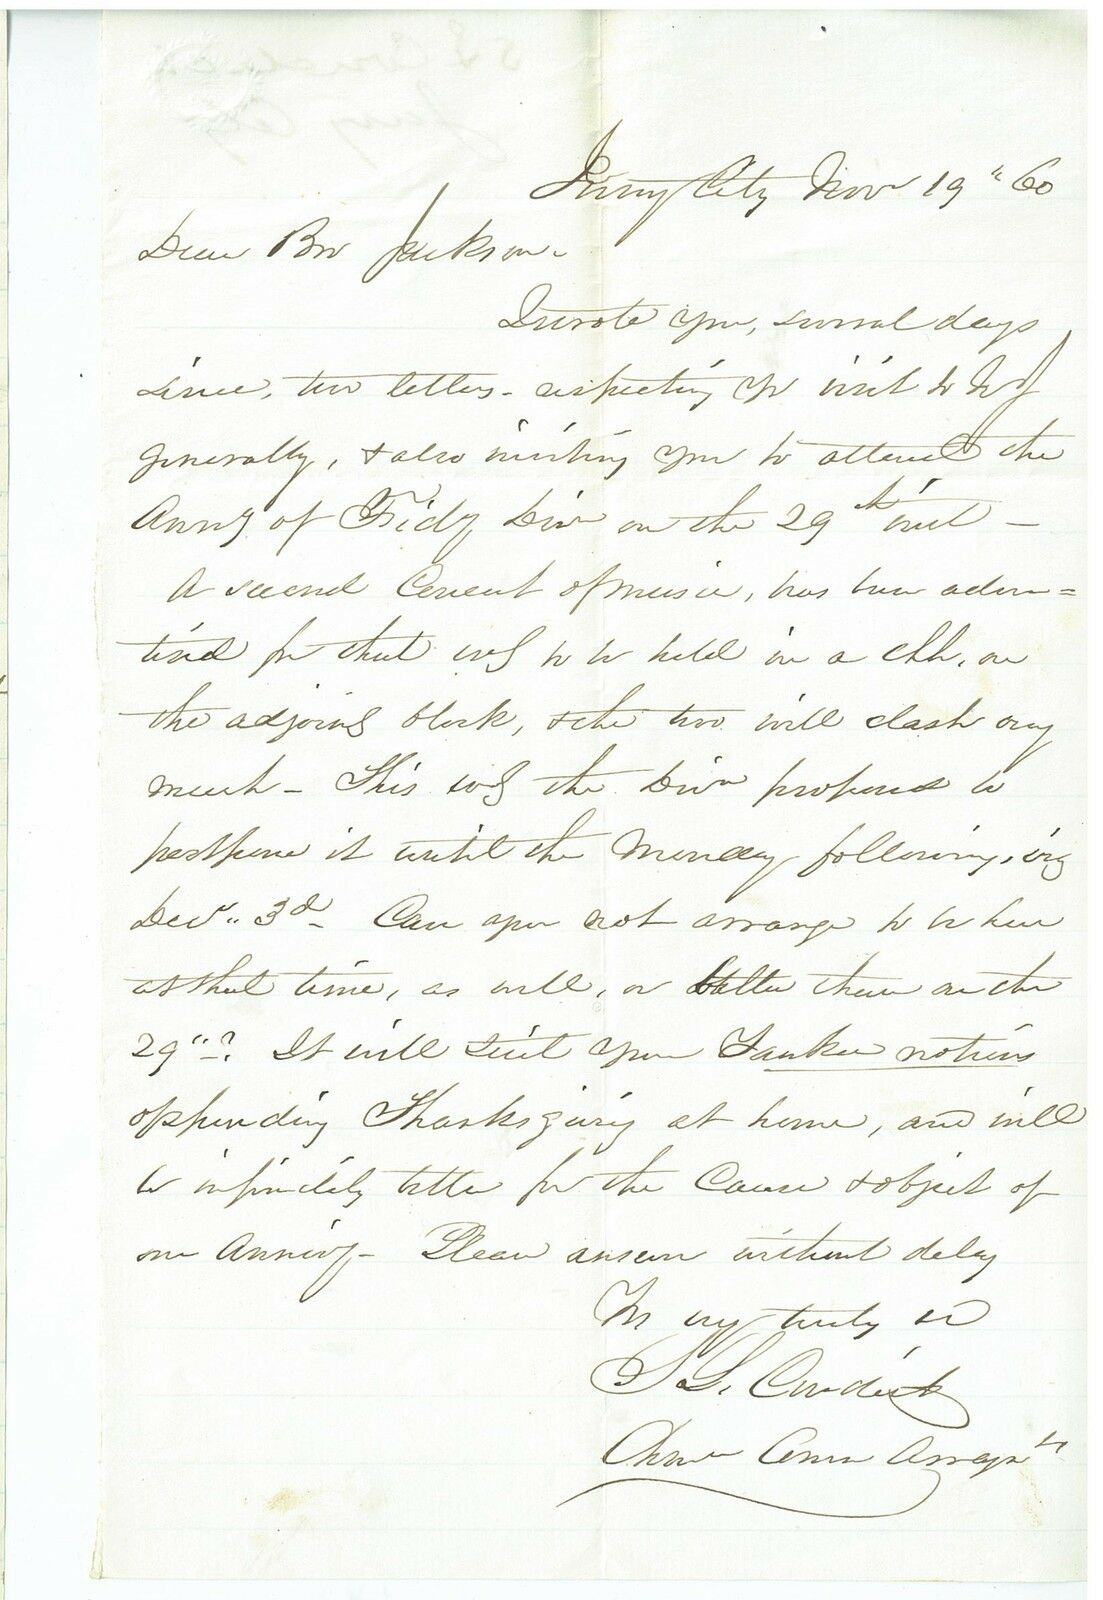 Jersey City Nov 19" 60
Dear Bro Jackson.
I wrote you, several days
since, two letters - respecting yr visit to N J
generally, & also inviting you to attend the
Annvy of Fidy Divn on the 29th inst -
A second Concert of music, has been adver=
tised for that evg to be held in a chh, on
the adjoing block, & the two will clash very
much - This evg the Divn proposes to
postpone it until the Monday following, viz
Decr. 3d - Can you not arrange to be here
at that time, as well, or better than on the
29"? It will suit your Yankee notions
of spending Thanksgiving at home, and will
be infinitely better for the Cause & object of
our Annivy - Please answer without delay
Yrs very truly &c
S L. Condict
Chmn Comm Arrgts
S L Condict
Jersey City